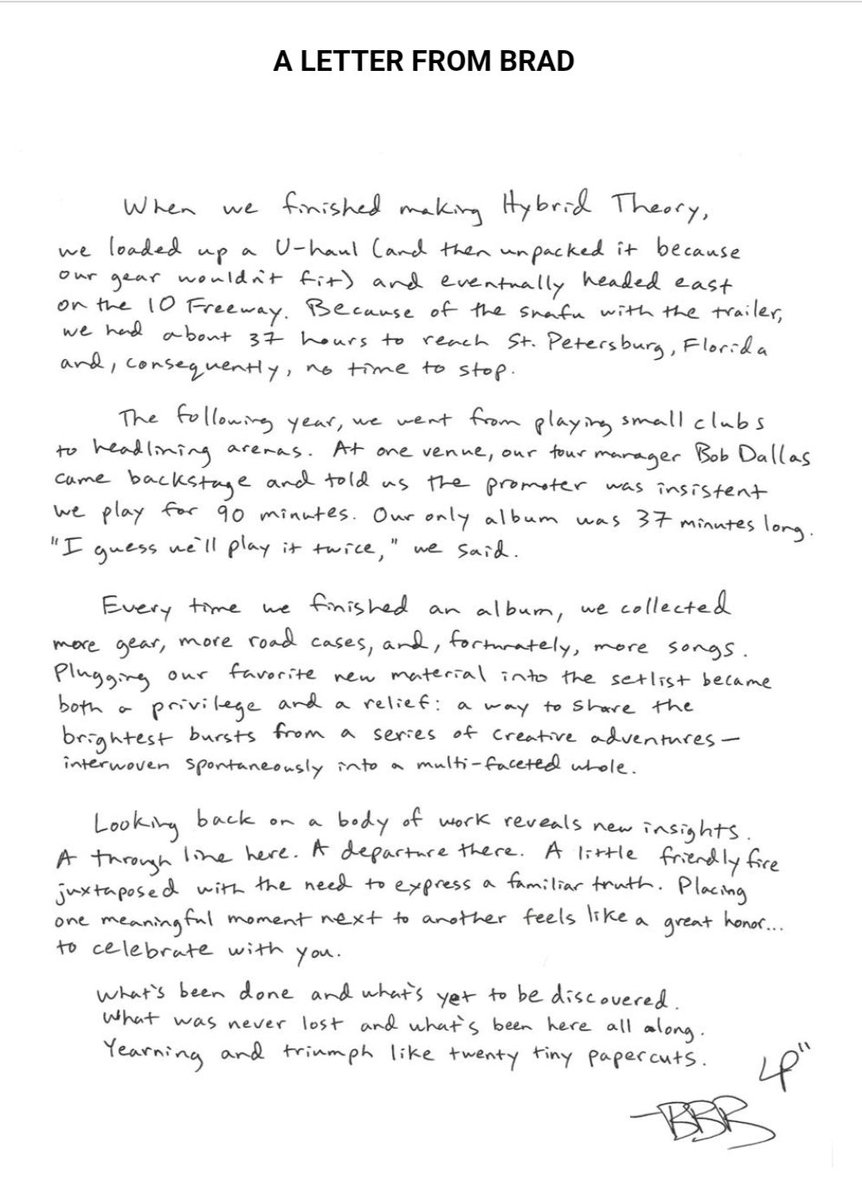 A LETTER FROM BRAD
When we finished making Hybrid Theory,
we loaded up a U-haul (and then unpacked it because
our gear wouldn't fit) and eventually headed east
on the 10 Freeway. Because of the snafu with the trailer,
we had about 37 hours to reach St. Petersburg, Florida
and, consequently, no time to stop.
The following year, we went from playing small clubs
to headlining arenas. At one venue, our tour manager Bob Dallas
came backstage and told us the promoter was insistent
we play for 90 minutes. Our only album was 37 minutes long.
"I guess we'll play it twice," we said.
Every time we finished an album, we collected
more gear, more road cases, and, fortunately, more songs.
Plugging our favorite new material into the setlist became
both a privilege and a relief: a way to share the
brightest bursts from a series of creative adventures—
interwoven spontaneously into a multi-faceted whole.
Looking back on a body of work reveals new insights.
A through line here. A departure there. A little friendly fire
juxtaposed with the need to express a familiar truth. Placing
one meaningful moment next to another feels like a great honor...
to celebrate with you.
What's been done and what's yet to be discovered.
What was never lost and what's been here all along.
Yearning and triumph like twenty tiny papercuts.
LP"
BBB